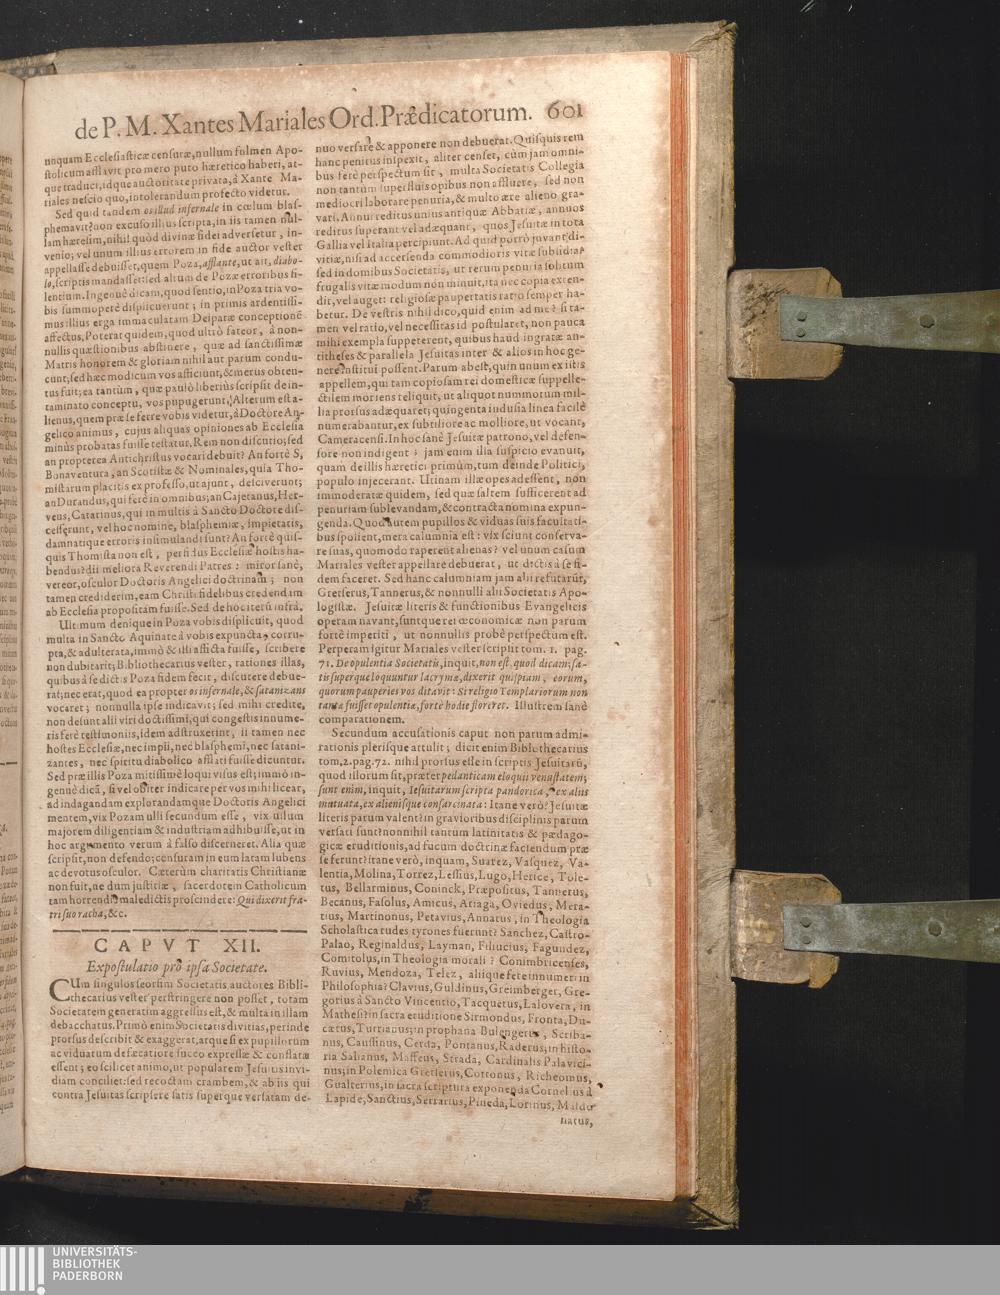 de P. M. Xantes Mariales Ord. Prædicatorum. 601
unquam Ecclesiasticæ censuræ, nullum fulmen Apo-
stolicum afflavit pro mero puto hæretico haberi, at-
que traduci, idque auctoritate privata, à Xante Ma-
riales nescio quo, intolerandum profecto videtur.
Sed quid tandem os illud infernale in cœlum blas-
phemavit? non excuso illius scripta, in iis tamen nul-
lam hæresim, nihil quòd divinæ fidei adversetur, in-
venio; vel unum illius errorem in fide auctor vester
appellasse debuisset, quem Poza, afflante, ut ait, diabo-
lo, scriptis mandasset: sed altum de Pozæ erroribus si-
lentium. Ingenuè dicam, quod sentio, in Poza tria vo-
bis summopetè displicuerunt; in primis ardentissi-
mus illius erga immaculatam Deiparæ conceptionē
affectus. Poterat quidem, quod ultrò fateor, à non-
nullis quæstionibus abstinere, quæ ad sanctissimæ
Matris honorem & gloriam nihil aut parum condu-
cunt; sed hæc modicum vos afficiunt, & merus obten-
tus fuit; ea tantùm, quæ paulò liberiùs scripsit de in-
taminato conceptu, vos pupugerunt. Alterum est a-
lienus, quem præ se ferre vobis videtur, à Doctore An-
gelico animus, cujus aliquas opiniones ab Ecclesia
minùs probatas fuisse testatur. Rem non discutio; sed
an propterea Antichristus vocari debuit? An fortè S.
Bonaventura, an Scotistæ & Nominales, quia Tho-
mistarum placitis ex professo, ut ajunt, desciverunt;
an Durandus, qui ferè in omnibus; an Cajetanus, Her-
veus, Catarinus, qui in multis à Sancto Doctore dis-
cesserunt, vel hoc nomine, blasphemiæ, impietatis,
damnatique erroris insimulandi sunt? An fortè quis-
quis Thomista non est, perfidus Ecclesiæ hostis ha-
bendus? dii meliora Reverendi Patres: miror sanè,
vereor, osculor Doctoris Angelici doctrinam; non
tamen crediderim, eam Christi fidelibus credendam
ab Ecclesia propositam fuisse. Sed de hoc iterū infrà.
Ultimum denique in Poza vobis displicuit, quod
multa in Sancto Aquinate à vobis expuncta, corru-
pta, & adulterata, immò & illi afficta fuisse, scribere
non dubitarit; Bibliothecarius vester, rationes illas,
quibus à se dictis Poza fidem fecit, discutere debue-
rat; nec erat, quod ea propter os infernale, & satanizans
vocaret; nonnulla ipse indicavit; sed mihi credite,
non desunt alii viri doctissimi, qui congestis innume-
ris ferè testimoniis, idem adstruxerint, ii tamen nec
hostes Ecclesiæ, nec impii, nec blasphemi, nec satani-
zantes, nec spiritu diabolico afflati fuisse dicuntur.
Sed præ illis Poza mitissimè loqui visus est; immò in-
genuè dicā, si vel obiter indicare per vos mihi licear,
ad indagandam explorandamque Doctoris Angelici
mentem, vix Pozam ulli secundum esse, vix ullum
majorem diligentiam & industriam adhibuisse, ut in
hoc argumento verum à falso discerneret. Alia quæ
scripsit, non defendo; censuram in eum latam lubens
ac devotus osculor. Cæterùm charitatis Christianæ
non fuit, ne dum justitiæ, sacerdotem Catholicum
tam horrendis maledictis proscindere: Qui dixerit fra-
tri suo racha, &c.
CAPVT XII.
Expostulatio pro ipsa Societate.
CUm singulos seorsim Societatis auctores Bibli-
thecarius vester perstringere non posset, totam
Societatem generatim aggressus est, & multa in illam
debacchatus. Primò enim Societatis divitias, perinde
prorsus describit & exaggerat, atque si ex pupillorum
ac viduarum defæcatiore succo expressæ & conflatæ
essent; eo scilicet animo, ut popularem Jesuitis invi-
diam conciliet: sed recoctam crambem, & ab iis qui
contra Jesuitas scripsere satis superque versatam de-
nuo versare & apponere non debuerat. Quisquis rem
hanc penitus inspexit, aliter censet, cùm jam omni-
bus ferè perspectum sit, multa Societatis Collegia
non tantùm superfluis opibus non affluere, sed non
mediocri laborare penuria, & multo ære alieno gra-
vari. Annui reditus unius antiquæ Abbatiæ, annuos
reditus superant vel adæquant, quos Jesuitæ in tota
Gallia vel Italia percipiunt. Ad quid porrò juvant di-
vitiæ, nisi ad accersenda commodioris vitæ subsidia?
sed in domibus Societatis, ut rerum penuria solitum
frugalis vitæ modum non minuit, ita nec copia exten-
dit, vel auget: religiosæ paupertatis ratio semper ha-
betur. De vestris nihil dico, quid enim ad me? si ta-
men vel ratio, vel necessitas id postularet, non pauca
mihi exempla suppeterent, quibus haud ingratæ an-
titheses & parallela Jesuitas inter & alios in hoc ge-
nere institui possent. Parum abest, quin unum ex iitis
appellem, qui tam copiosam rei domesticæ suppelle-
ctilem moriens reliquit, ut aliquot nummorum mil-
lia prorsus adæquaret; quingenta indusia linea facilè
numerabantur, ex subtiliore ac molliore, ut vocant,
Cameracensi. In hoc sanè Jesuitæ patrono, vel defen-
sore non indigent; jam enim illa suspicio evanuit,
quam de illis hæretici primùm, tum deinde Politici,
populo injecerant. Utinam illæ opes adessent, non
immoderatæ quidem, sed quæ saltem sufficerent ad
penuriam sublevandam, & contracta nomina expun-
genda. Quod autem pupillos & viduas suis facultati-
bus spolient, mera calumnia est: vix sciunt conserva-
re suas, quomodo raperent alienas? vel unum casum
Mariales vester appellare debuerat, ut dictis à se fi-
dem faceret. Sed hanc calumniam jam alii refutarūt,
Gretserus, Tannerus, & nonnulli alii Societatis Apo-
logistæ. Jesuitæ literis & functionibus Evangelicis
operam navant, suntque rei œconomicæ non parum
fortè imperiti, ut nonnullis probè perspectum est.
Perperam igitur Mariales vester scripsit tom. 1. pag.
71. De opulentia Societatis, inquit, non est, quod dicam; sa-
tis superque loquuntur lacrymæ, dixerit quispiam, eorum,
quorum pauperies vos ditavit: Si religio Templariorum non
tanta fuisset opulentiæ, fortè hodie floreret. Illustrem sanè
comparationem.
Secundum accusationis caput non parum admi-
rationis plerisque attulit; dicit enim Bibliothecarius
tom, 2. pag. 72. nihil prorsus esse in scriptis Jesuitarū,
quod illorum sit, præter pedanticam eloquii venustatem;
sunt enim, inquit, Jesuitarum scripta pandorica, ex aliis
mutuata, ex alienisque consarcinata: Itane verò? Jesuitæ
literis parum valent? in gravioribus disciplinis parum
versati sunt? nonnihil tantum latinitatis & pædago-
gicæ eruditionis, ad fucum doctrinæ faciendum præ
se ferunt? itane verò, inquam, Suarez, Vasquez, Va-
lentia, Molina, Torrez, Lessius, Lugo, Herice, Tole-
tus, Bellarminus, Coninck, Præpositus, Tannerus,
Becanus, Fasolus, Amicus, Ariaga, Oviedus, Mera-
tius, Martinonus, Petavius, Annatus, in Theologia
Scholastica rudes tyrones fuerunt? Sanchez, Castro-
Palao, Reginaldus, Layman, Filiucius, Fagundez,
Comitolus, in Theologia morali? Conimbricenses,
Ruvius, Mendoza, Telez, aliique fere innumeri in
Philosophia? Clavius, Guldinus, Greimberger, Gre-
gorius à Sancto Vincentio, Tacquetus, Lalovera, in
Mathesi? in sacra eruditione Sirmondus, Fronta, Du-
cætus, Turrianus; in prophana Bulengerus, Scriba-
nus, Caussinus, Cerda, Pontanus, Raderus; in histo-
ria Salianus, Maffeus, Strada, Cardinalis Palavici-
nus; in Polemica Gretserus, Cottonus, Richeomus,
Gualterius, in sacra scriptura exponenda Cornelius à
Lapide, Sanctius, Serrarius, Pineda, Lorinus, Maldo-
natus,
UNIVERSITÄTS-
BIBLIOTHEK
PADERBORN